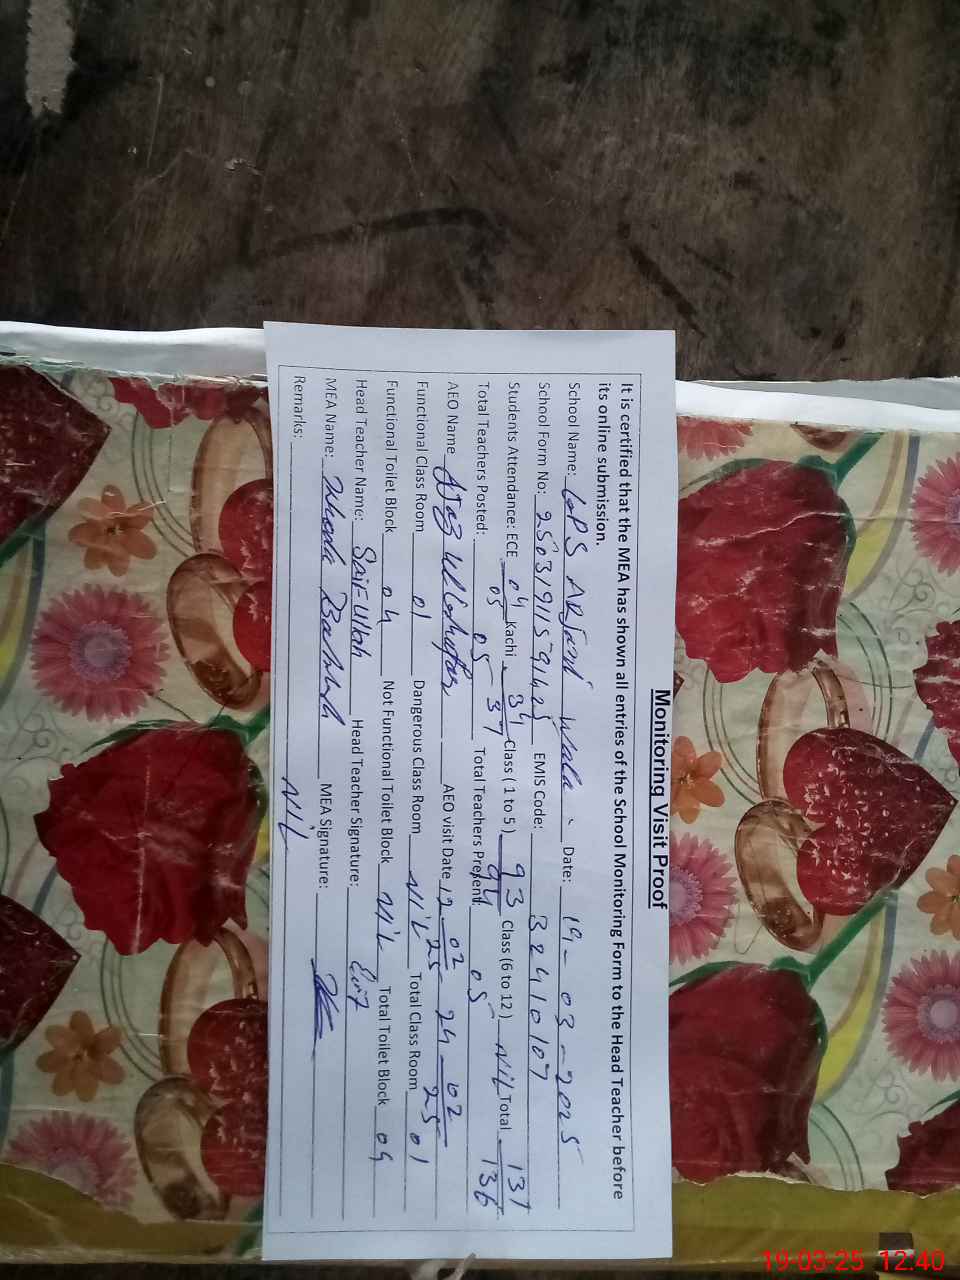 Monitoring Visit Proof
It is certified that the MEA has shown all entries of the School Monitoring Form to the Head Teacher before
its online submission.
School Name: GPS Wala Date: 19-03-2025
School Form No: EMIS Code: 32410107
Students Attendance: ECE 04/05 Kachi 34/37 Class ( 1 to 5 ) 93/94 Class (6 to 12) NIL Total 131/136
Total Teachers Posted: 05 Total Teachers Present: 05
AEO Name AEO visit Date 02/25 24-02/25
Functional Class Room 01 Dangerous Class Room NIL Total Class Room 01
Functional Toilet Block 04 Not Functional Toilet Block NIL Total Toilet Block 04
Head Teacher Name: SaifUllah Head Teacher Signature:
MEA Name: Khuda Bakhsh MEA Signature:
Remarks: NIL
19-03-25 12:40